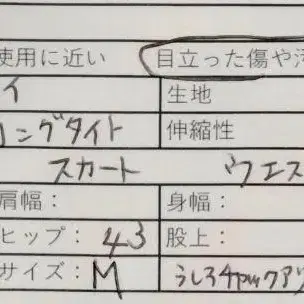 使用に近い 目立った傷や汚
イ 生地
ロングタイト 伸縮性
スカート ウエス
肩幅： 身幅：
ヒップ：43 股上：
サイズ：M うしろチャックアリ